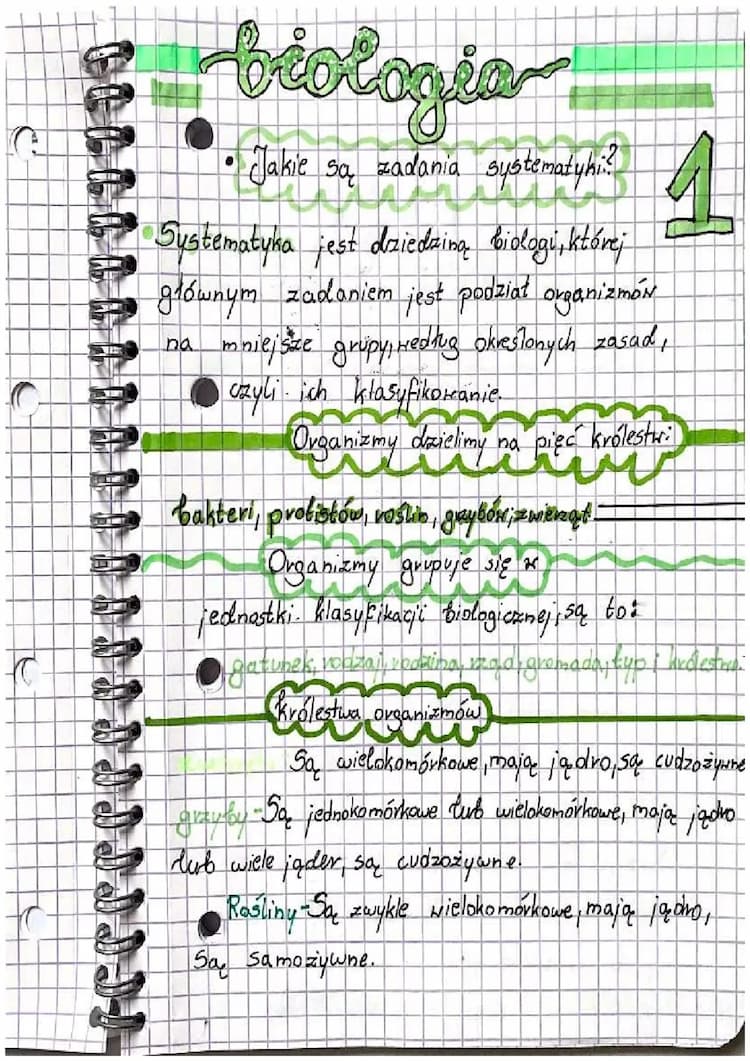 biologia
• Jakie są zadania systematyki?
1
• Systematyka jest dziedziną biologi, której
głównym zadaniem jest podział organizmów
na mniejsze grupy, według określonych zasad,
czyli ich klasyfikowanie.
Organizmy dzielimy na pięć królestw:
bakteri, protistów, roślin, grzybów, zwierząt
Organizmy grupuje się w
jednostki klasyfikacji biologicznej, są to:
gatunek, rodzaj, rodzina, rząd, gromada, typ i królestwo.
królestwa organizmów
Są wielokomórkowe, mają jądro, są cudzożywne
grzyby - Są jednokomórkowe lub wielokomórkowe, mają jądro
lub wiele jąder, są cudzożywne.
Rośliny - Są zwykle wielokomórkowe, mają jądro,
Są samożywne.